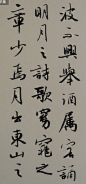 波不興舉酒屬客誦
明月之詩歌窈窕之
章少焉月出東山之